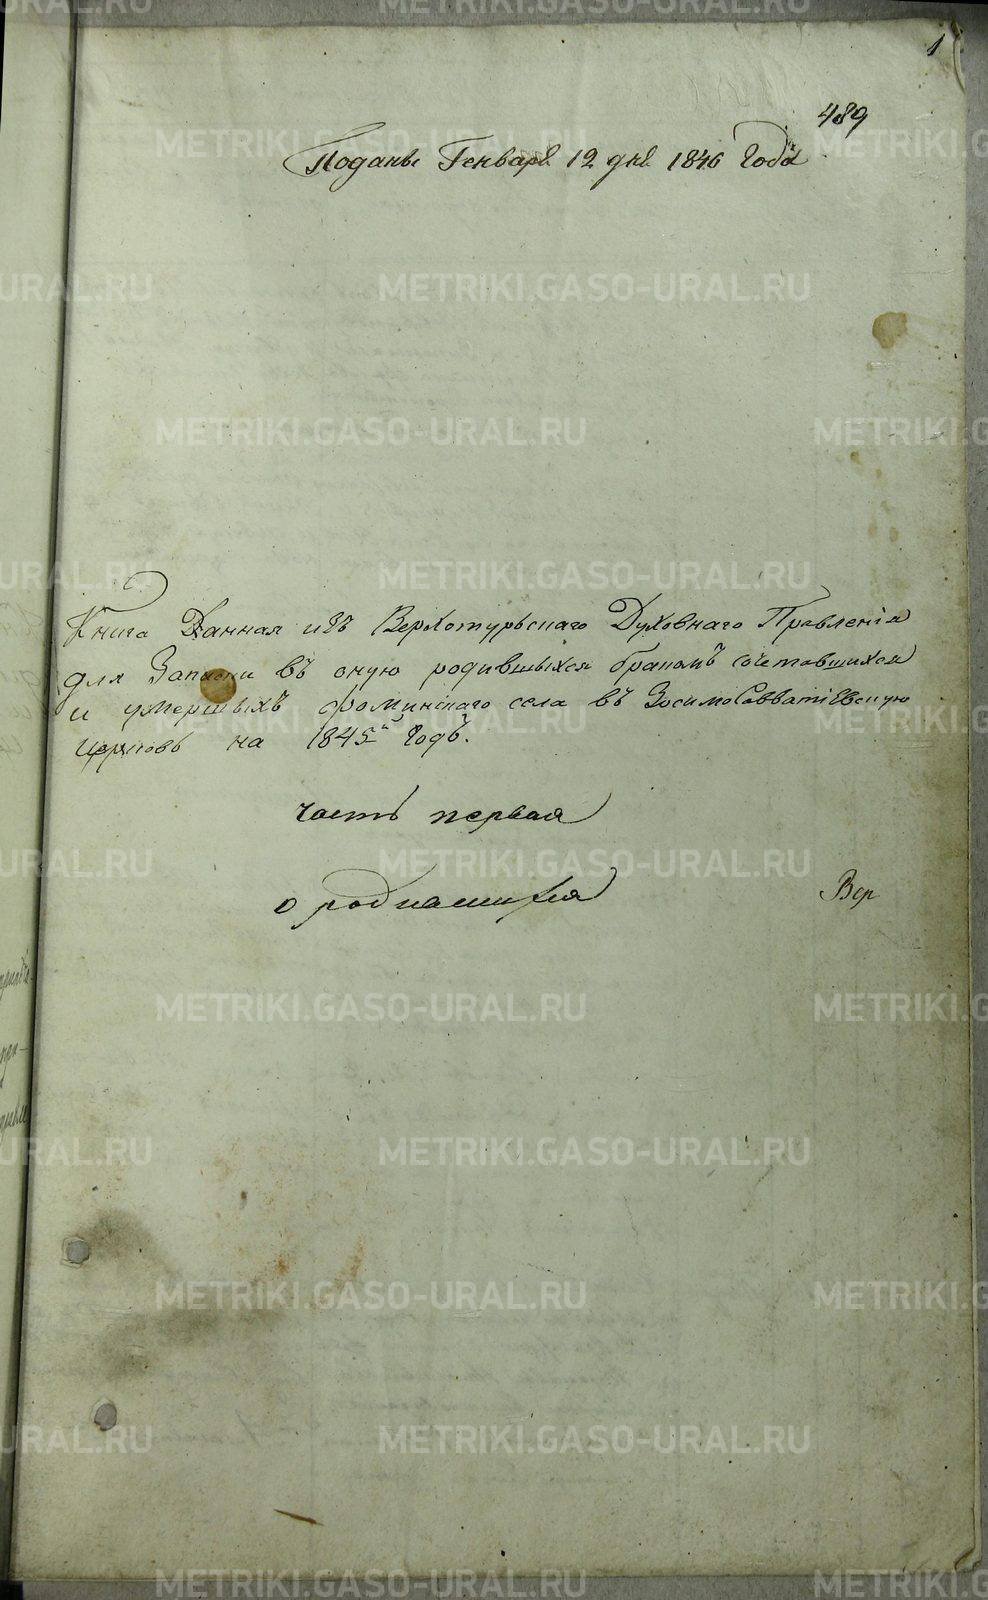 1
489
Поданы Генваря 12 дня 1846 Года
Книга Данная изъ Верхотурьскаго Духовнаго Правленія
для Записки въ оную родившыхся бракомъ сочетавшихся
и умершыхъ фоминскаго села въ ЗосимоСавватіЕвскую
церковь на 1845й Годъ.
часть первая
о родившихся
Вер
METRIKI.GASO-URAL.RU